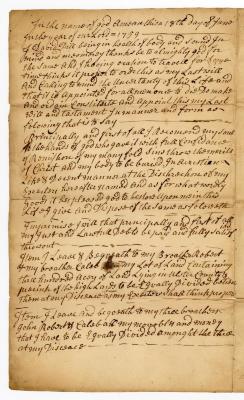 In the name of god Amen this 18th day of June
In the year of our Lord 1739
I David being in health of body and sound In
mind and memory thanks be to almighty god for
the Same And having ocation to travel for Some
time thinks it proper to order this as my last will
And Calling to mind the uncertainty of this Life and
that it is appointed for all men once to die Do make
and ordain Constitute and appoint this my Last
Will and testament In manner and form as
following that is to say
Principally and first of all I Recomend my Soul
to the hands of god who gave it with full Confidence
of Remission of my many fold Sins throw the merits
of Christ and my body to be buried In decent
Like & decent manner at the Discretion of my
Executors hereafter named and as for what worldly
goods it hes pleased god to bestow upon me in this
Life I give and Dispose of the Same as followeth
Imprimis I will that principally and first of all
my Just and Lawful Debts be paid and fully Satis
Item I Leave & Bequeath to my Brother Robert
& my brother Caleb Lot of Land Containing
three hundred Acres of Land Lying in
to be Equally Divided between
them at my Disease as my Executors shall think proper
Item I Leave and bequeath to my three brothers
John Robert & Caleb all my movables and money
that I have to be Equally Divided amongst the three
at my Disease